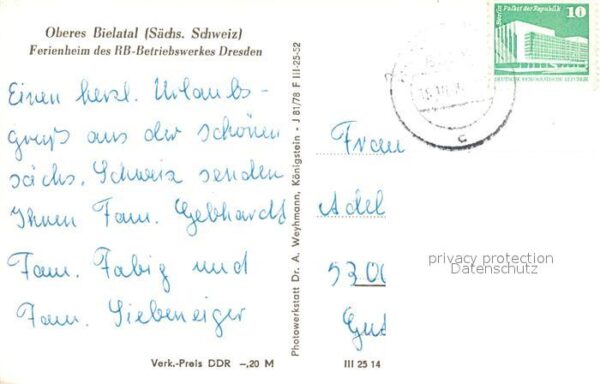 Oberes Bielatal (Sächs. Schweiz)
Ferienheim des RB-Betriebswerkes Dresden
Einen herzl. Urlaubs-
gruß aus der schönen
sächs. Schweiz senden
Ihnen Fam. Gebhardt
Fam. Fabig und
Fam. Siebeneiger
Verk.-Preis DDR -,20 M
Photowerkstatt Dr. A. Weyhmann, Königstein - J 81/78 F III-25-52
Berlin Palast der Republik
10
DEUTSCHE DEMOKRATISCHE REPUBLIK
Frau
Adel
53.00
Gus
privacy protection
Datenschutz
III 25 14